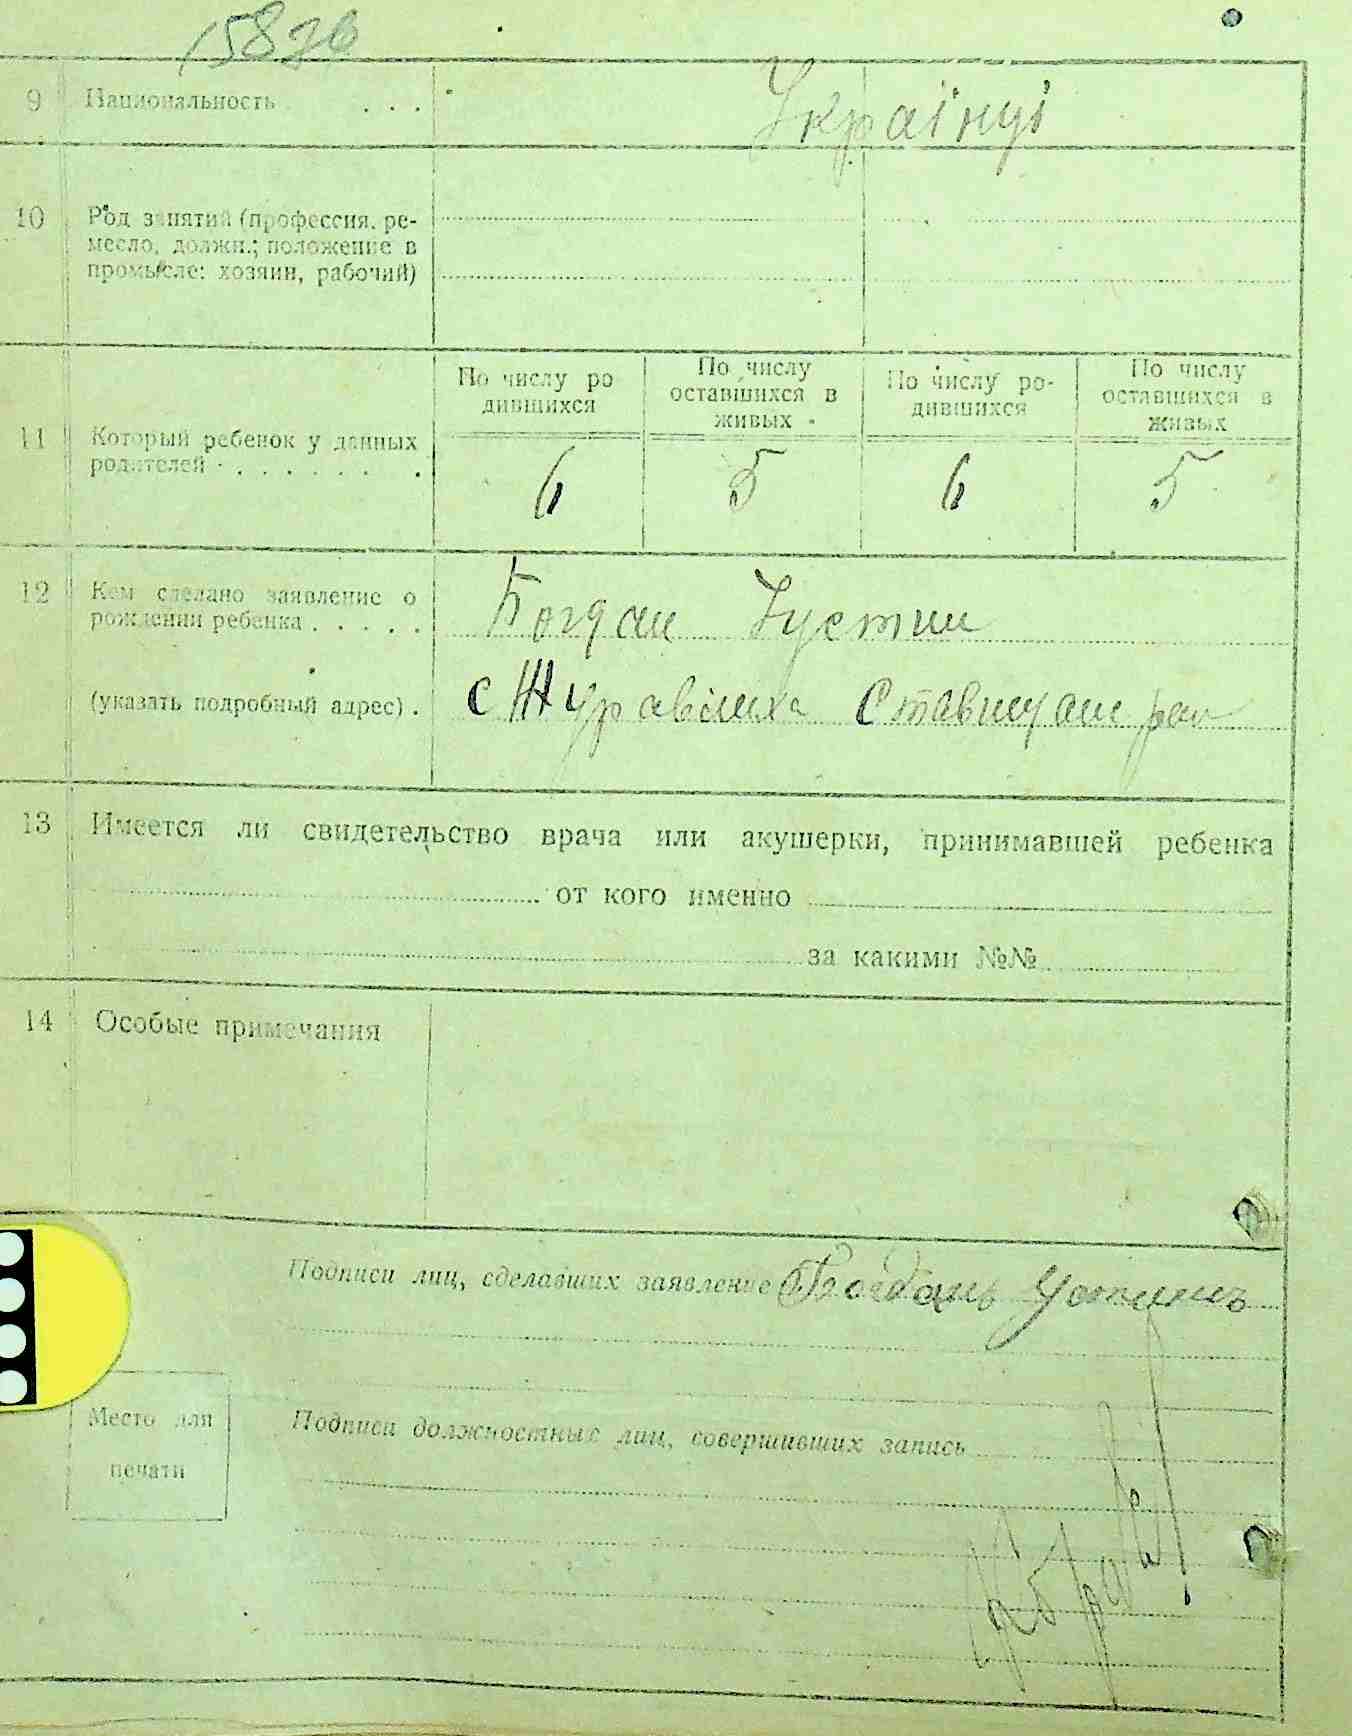 9 Национальность . . . Українці
10 Род занятий (профессия, ре-
месло, должн.; положение в
промысле: хозяин, рабочий)
По числу ро
дившихся
По числу
оставшихся в
живых
По числу ро-
дившихся
По числу
оставшихся в
живых
11 Который ребенок у данных
родителей . . . . . . . .
6 5 6 5
12 Кем сделано заявление о
рождении ребенка . . . . .
Богдан Устин
(указать подробный адрес) . с Журавлиха Ставищан рай
13 Имеется ли свидетельство врача или акушерки, принимавшей ребенка
от кого именно
за какими №№
14 Особые примечания
Подписи лиц, сделавших заявление Богданъ Устинъ
Место для
печати
Подписи должностных лиц, совершивших запись